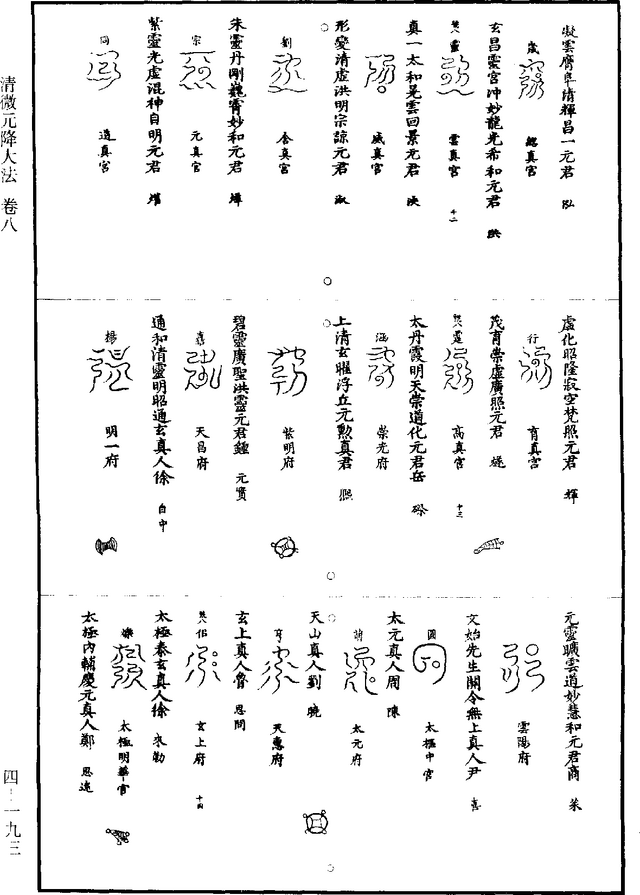 清微元降大法 卷八
四—一九三
凝雲膺阜清輝昌一元君 泓
歲 懿真宮
玄昌靈宮沖妙龍光希和元君
靈 雲真宮 十二
真一太和晃雲回景元君 映
威真宮
形變清虛洪明宗諒元君 淑
劉 含真宮
朱靈丹剛巍霄妙和元君 煒
宗 元真宮
紫靈光虛混神自明元君
同 造真宮
虛化昭隆寂空梵照元君 輝
行 育真宮
茂育崇虛廣照元君
高真宮 十三
太丹霞明天崇道化元君岳
涵 榮光府
上清玄曜浮丘元勲真君
紫明府
碧靈廣聖洪靈元君鍾 元賢
嘉 天昌府
通和清靈明昭通玄真人徐 自中
楊 明一府
元靈曠雲道妙慧和元君商 萊
雲陽府
文始先生關令無上真人尹 喜
圓 太極中宮
太元真人周 陳
謝 太元府
天山真人劉 曉
亨 天惠府
玄上真人魯 思問
侶 玄上府 十四
太極泰玄真人徐 來勒
樂 太極明華宮
太極內輔慶元真人鄭 思遠